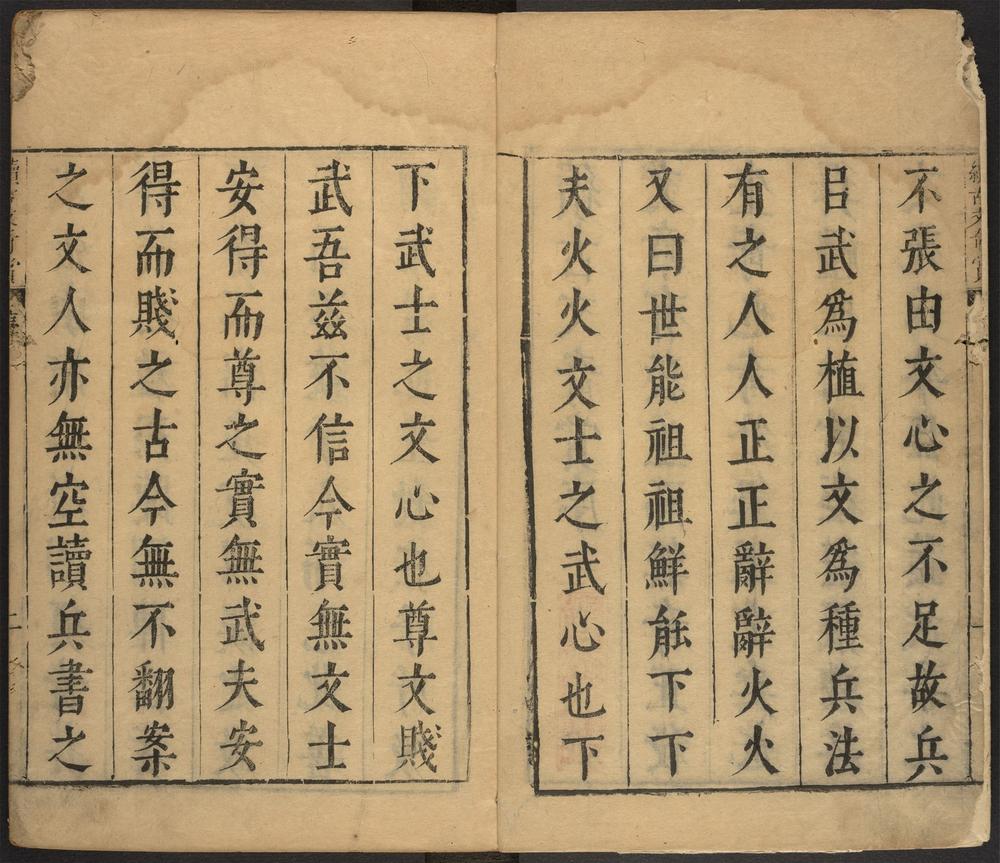 不張由文心之不足故兵
曰武爲植以文爲種兵法
有之人人正正辭辭火火
又曰世能祖祖鮮能下下
夫火火文士之武心也下
下武士之文心也尊文賤
武吾茲不信今實無文士
安得而尊之實無武夫安
得而賤之古今無不翻案
之文人亦無空讀兵書之